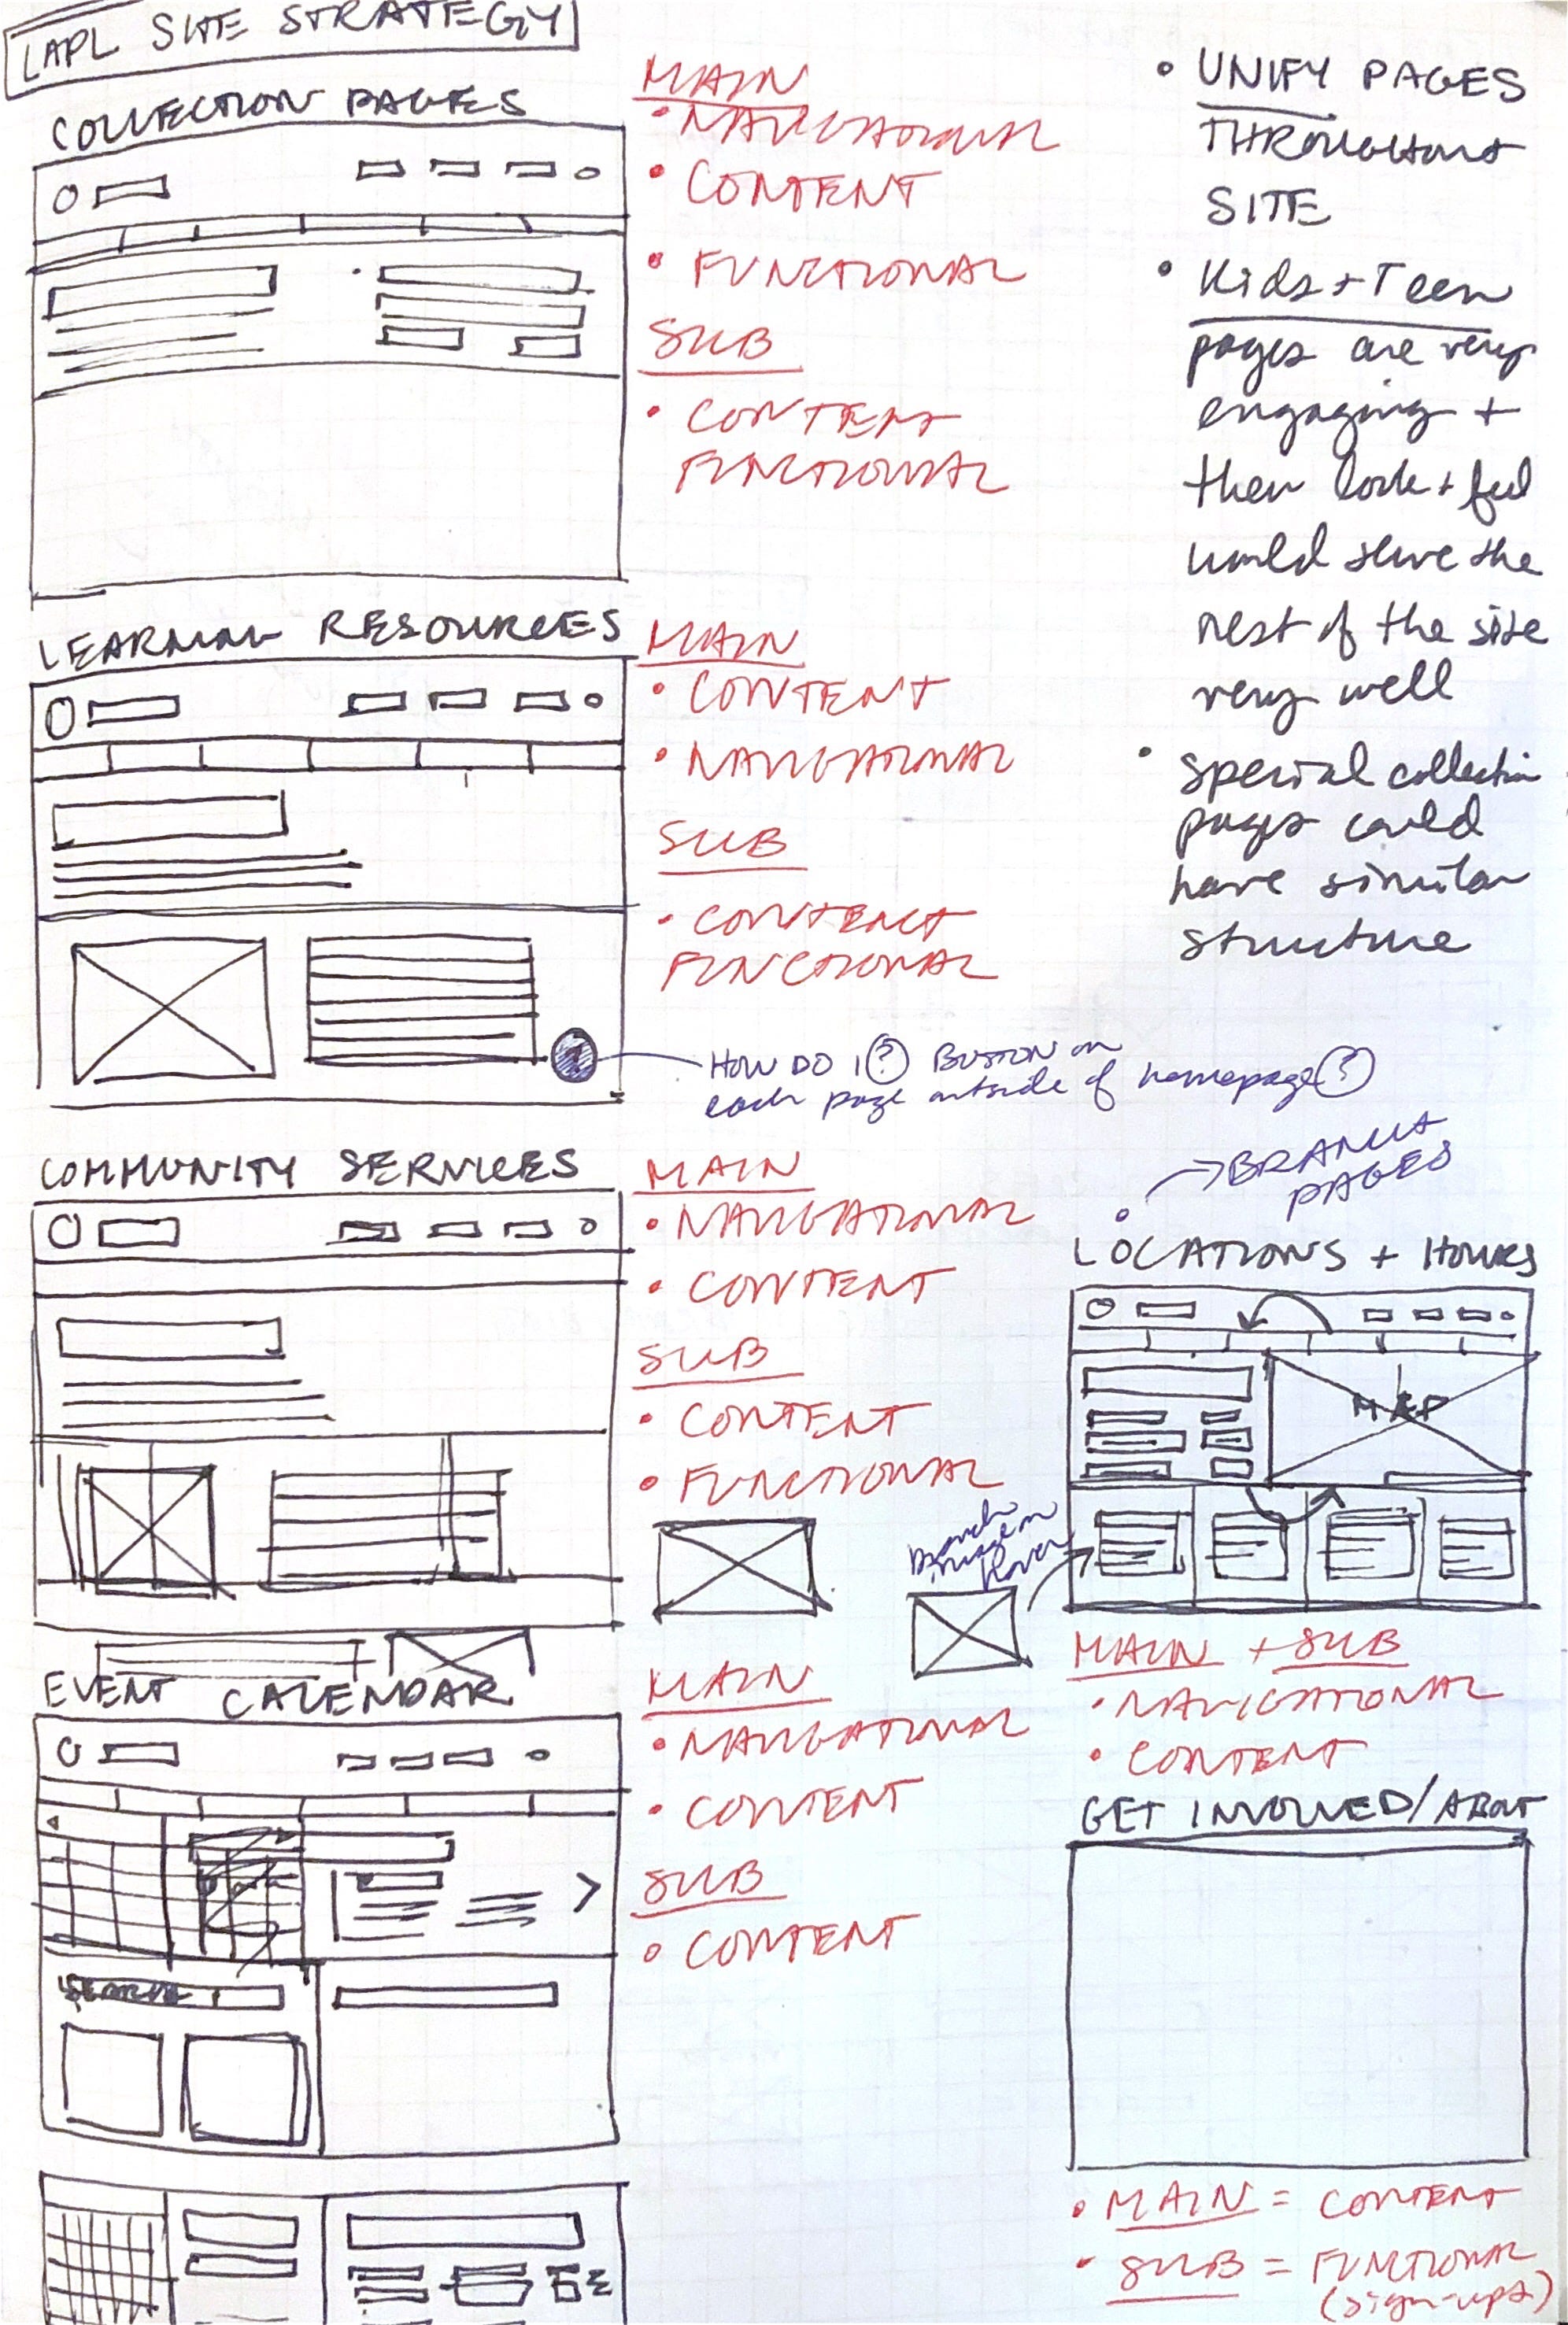 LAPL SITE STRATEGY
COLLECTION PAGES
MAIN
• NAVIGATIONAL
• CONTENT
• FUNCTIONAL
SUB
• CONTENT
FUNCTIONAL
LEARNING RESOURCES
MAIN
• CONTENT
• NAVIGATIONAL
SUB
• CONTENT
FUNCTIONAL
HOW DO I ? BUTTON on
each page outside of homepage ?
COMMUNITY SERVICES
MAIN
• NAVIGATIONAL
• CONTENT
SUB
• CONTENT
• FUNCTIONAL
EVENT CALENDAR
MAIN
• NAVIGATIONAL
• CONTENT
SUB
• CONTENT
SEARCH
• UNIFY PAGES
THROUGHOUT
SITE
• Kids + Teen
pages are very
engaging +
their look + feel
would serve the
rest of the site
very well
• Special collection
pages could
have similar
structure
• → BRANCH
PAGES
LOCATIONS + HOURS
MAP
Branch
image on
hover
MAIN + SUB
• NAVIGATIONAL
• CONTENT
GET INVOLVED/ABOUT
• MAIN = CONTENT
• SUB = FUNCTIONAL
(sign-ups)